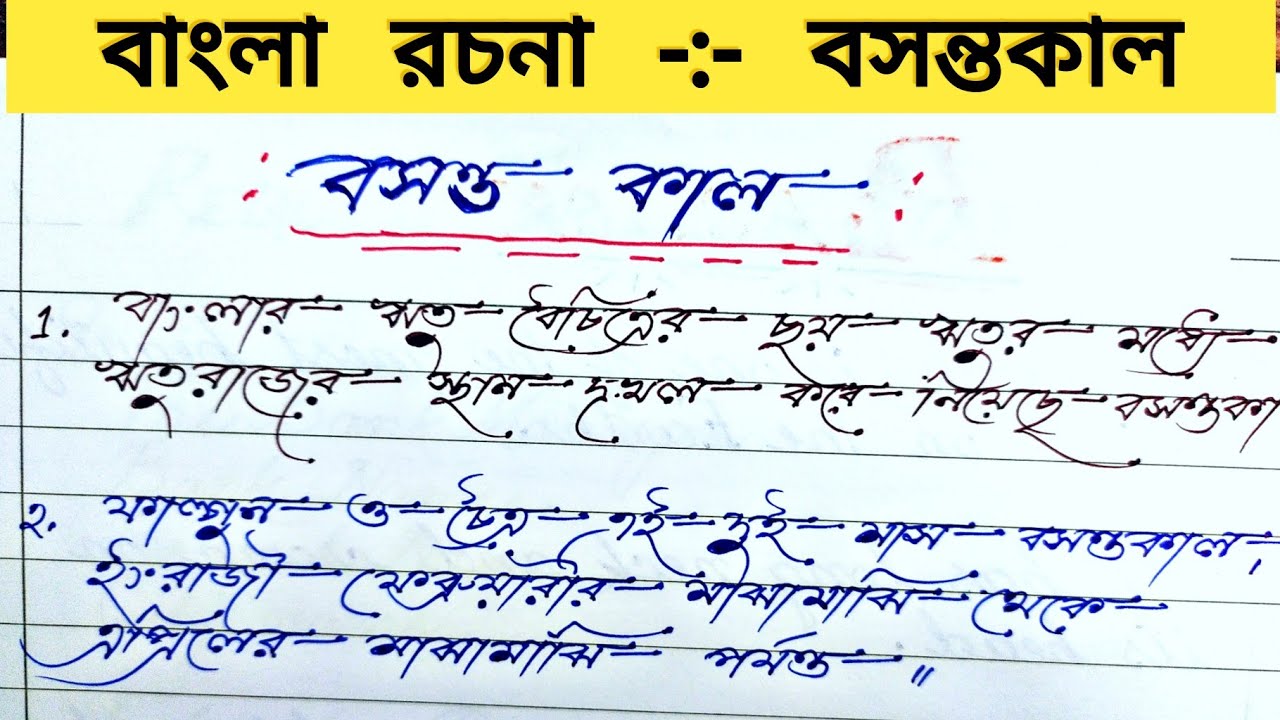 বাংলা রচনা -:- বসন্তকাল
বসন্ত কাল
1. বাংলার ঋতু বৈচিত্রের ছয় ঋতুর মধ্যে
ঋতুরাজের স্থান দখল করে নিয়েছে বসন্তকা
২. ফাল্গুন ও চৈত্র এই দুই মাস বসন্তকাল,
ইংরাজী ফেব্রুয়ারীর মাঝামাঝি থেকে
এপ্রিলের মাঝামাঝি পর্যন্ত ॥